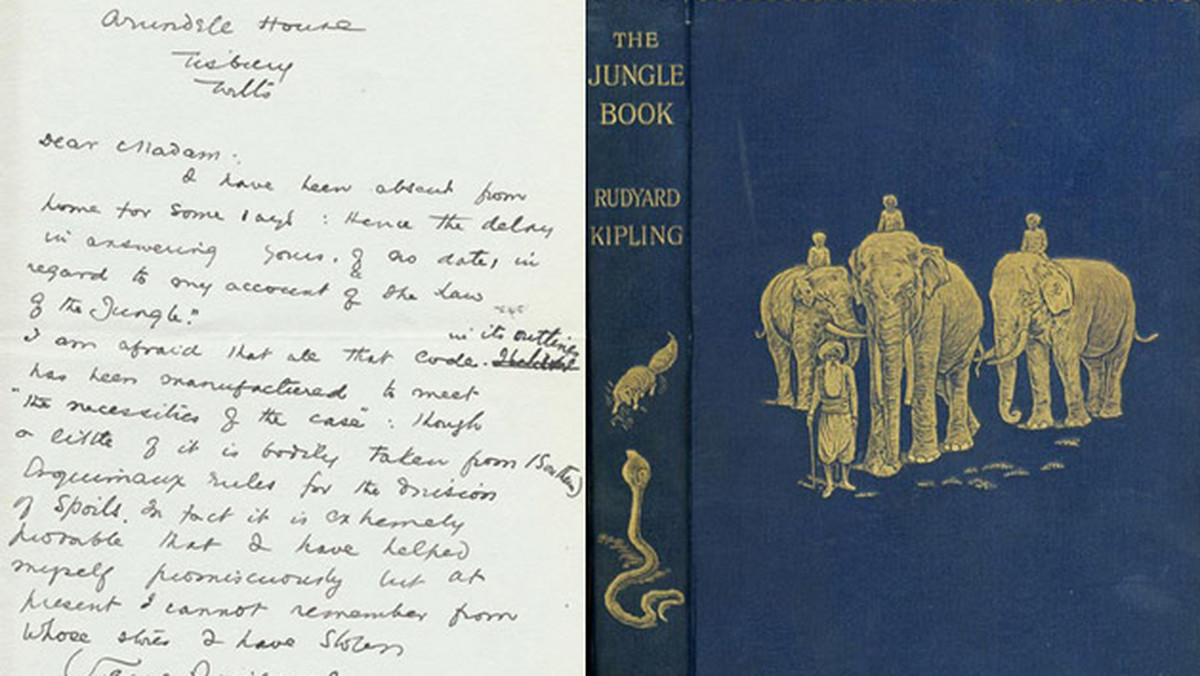 Arundele House
Tisbury
Wilts
Dear Madam:
I have been absent from
home for some days: Hence the delay
in answering yours, of no date, in
regard to my account of the Law
of the Jungle."
in its outlines
I am afraid that all that code
has been manufactured to meet
"the necessities of the case": though
a little of it is bodily taken from (Southern)
Esquimaux rules for the division
of spoils. In fact it is extremely
probable that I have helped
myself promiscuously but at
present I cannot remember from
whose stories I have stolen
THE
JUNGLE
BOOK
RUDYARD
KIPLING